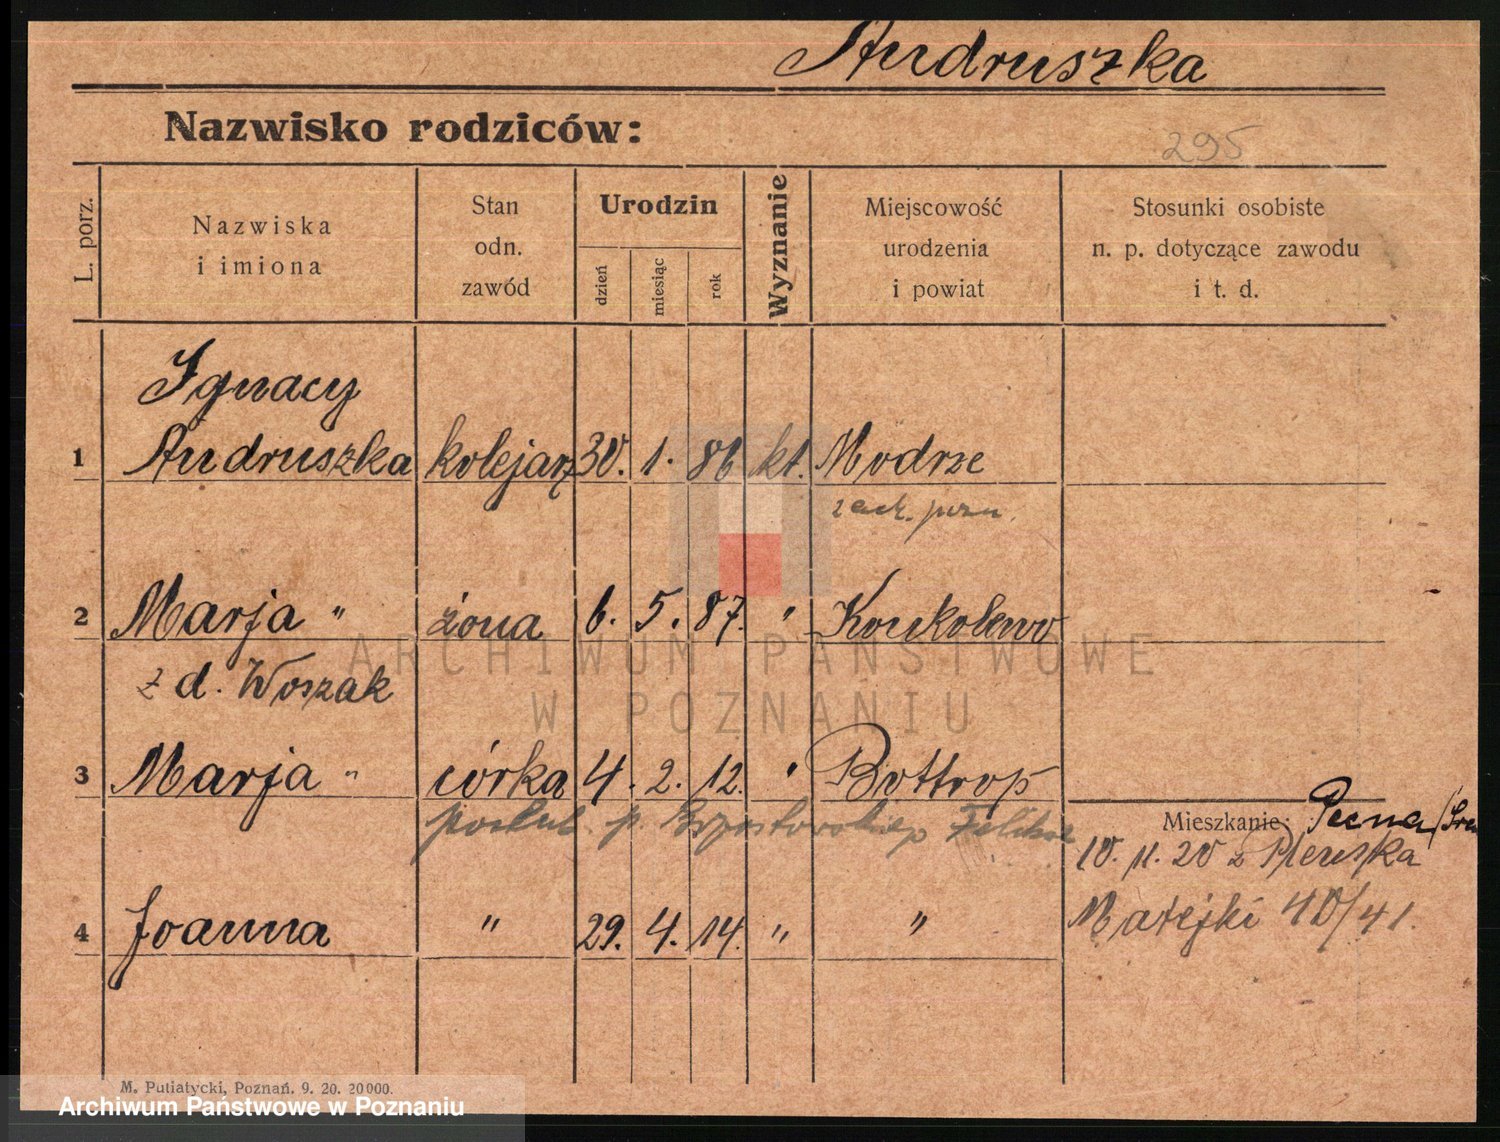 Andruszka
Nazwisko rodziców:
295
L. porz.
Nazwiska
i imiona
Stan
odn.
zawód
Urodzin
dzień
miesiąc
rok
Wyznanie
Miejscowość
urodzenia
i powiat
Stosunki osobiste
n. p. dotyczące zawodu
i t. d.
Ignacy
1 Andruszka kolejarz 30. 1. 86 kt. Modrze
zach. pozn.
2 Marja " żona 6. 5. 87. " Konkolewo
z d. Woszak
3 Marja " córka 4. 2. 12. " Bottrop
poślub. p.
Mieszkanie: Pecna
10. 11. 20 z
Matejki 40/41.
4 Joanna " 29. 4. 14. " "
ARCHIWUM PAŃSTWOWE
W POZNANIU
M. Putiatycki, Poznań. 9. 20. 20000.
Archiwum Państwowe w Poznaniu